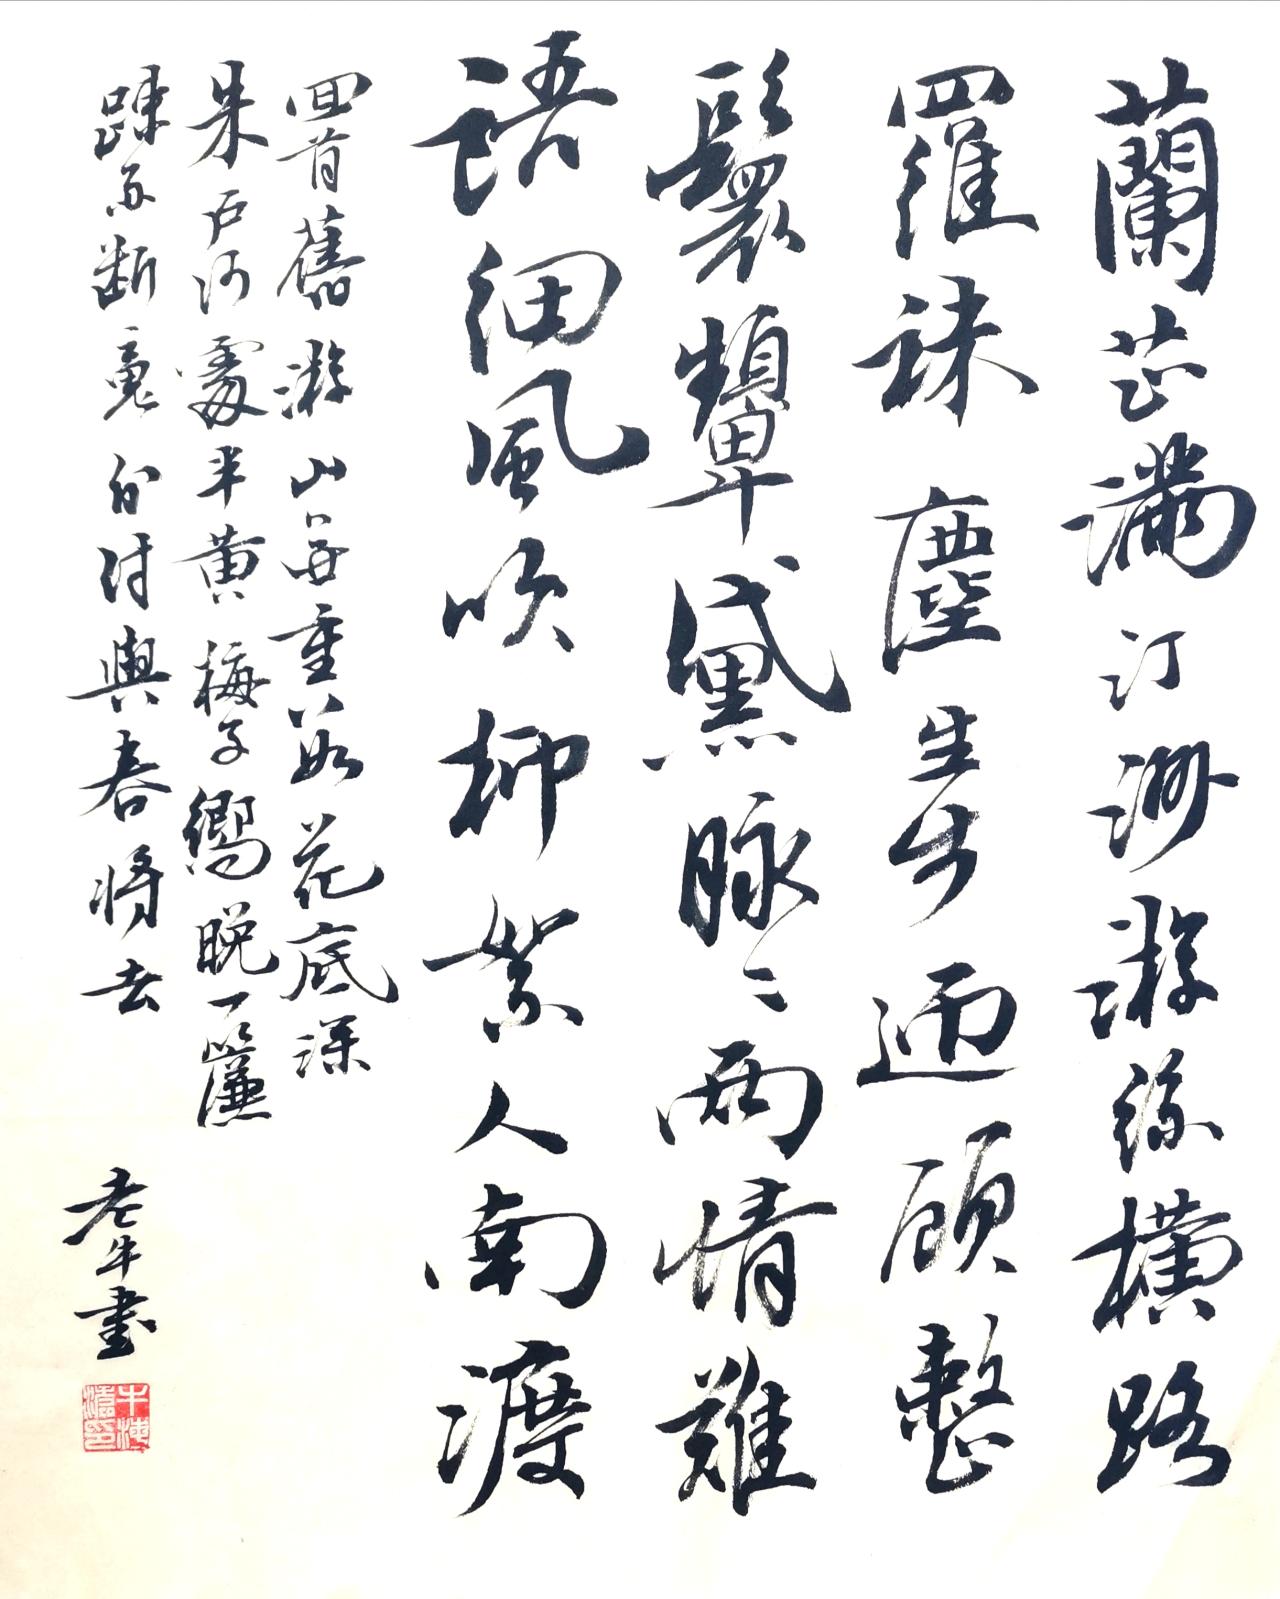 蘭芷滿汀洲游絲橫路
羅袜塵生步迎顧整
鬟顰黛脉〻兩情難
語細風吹柳絮人南渡
回首舊游山無重數花底深
朱戶何處半黄梅子嚮晚一簾
疎雨断魂分付與春將去
老牛書